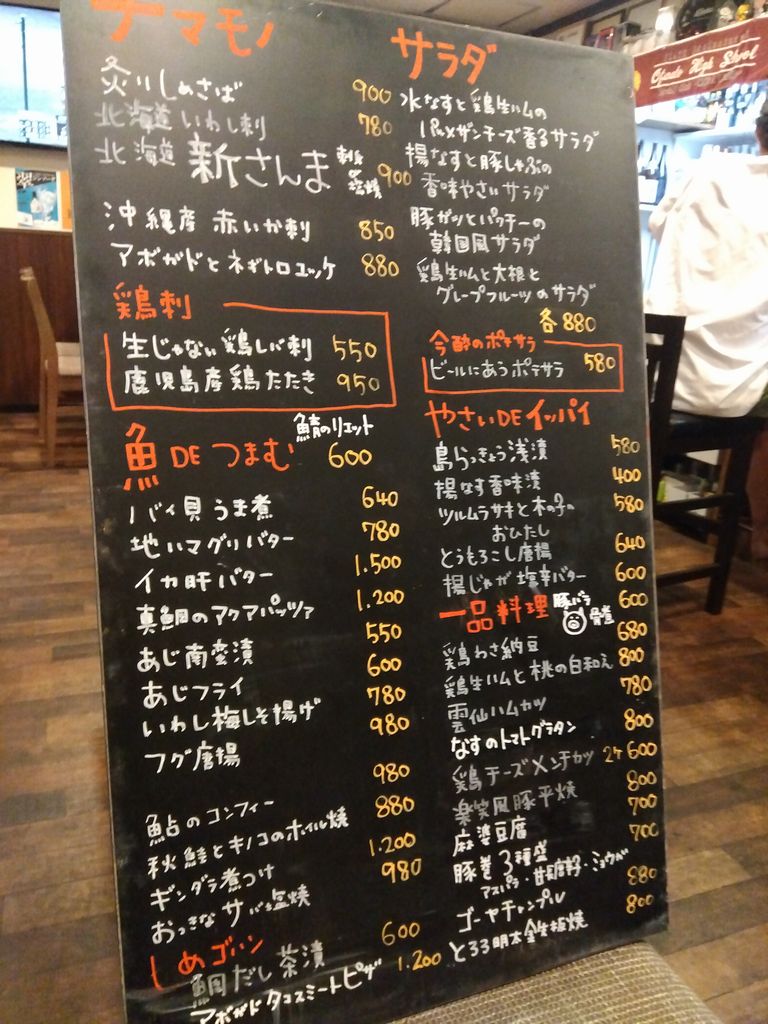 ナマモノ
炙りしめさば 900
北海道 いわし刺 780
北海道 新さんま 刺身 or 塩焼 900
沖縄産 赤いか刺 850
アボガドとネギトロユッケ 880
鶏刺
生じゃない鶏レバ刺 550
鹿児島産鶏たたき 950
魚DEつまむ
鯖のリエット 600
バイ貝うま煮 640
地ハマグリバター 780
イカ肝バター 1.500
真鯛のアクアパッツァ 1.200
あじ南蛮漬 550
あじフライ 600
いわし梅しそ揚げ 780
フグ唐揚 980
鮎のコンフィー 980
秋鮭とキノコのホイル焼 880
ギンダラ煮つけ 1.200
おっきなサバ塩焼 980
しめゴハン
鯛だし茶漬 600
アボガドタコスミートピザ 1.200
サラダ
水なすと鶏生ハムの
パルメザンチーズ香るサラダ
揚なすと豚しゃぶの
香味やさいサラダ
豚ガツとパクチーの
韓国風サラダ
鶏生ハムと大根と
グレープフルーツのサラダ
各880
今酔のポテサラ
ビールにあうポテサラ 580
やさいDEイッパイ
島らっきょう浅漬 580
揚なす香味漬 400
ツルムラサキと木の子の 580
おひたし
とうもろこし唐揚 640
揚じゃが塩辛バター 600
一品料理 豚バラ 骨煮 600
鶏わさ納豆 680
鶏生ハムと桃の白和え 800
雲仙ハムカツ 780
なすのトマトグラタン 800
鶏チーズメンチカツ 2ケ600
楽笑風豚平焼 800
麻婆豆腐 700
豚巻3種盛 700
アスパラ・甘長唐辛子・ミョウガ
ゴーヤチャンプル 880
とろろ明太金生板焼 800
High Shool